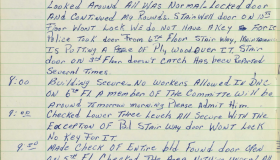 Looked Around All Was Normal. Locked door
And Continued My Rounds. Stairwell door on 12th
Door Wont Lock We do Not have A Key For It
Police Took door From 6th Floor Stair Way,
Is Putting A Piece of Plywood over It. Stair
door on 3rd Floor doesn't Catch has been Reported
Several Times.
8:00 Building Secure - No Workers Allowed In DNC
on 6th Fl A member of The Committee Will be
Around Tomorrow morning Please Admit Him
Checked Lower Three Levels All Secure With The
Exception of Stair way door Wont Lock
No Key For It
Made Check Of Entire bld Found door Open
on 5th Fl Checked The Area